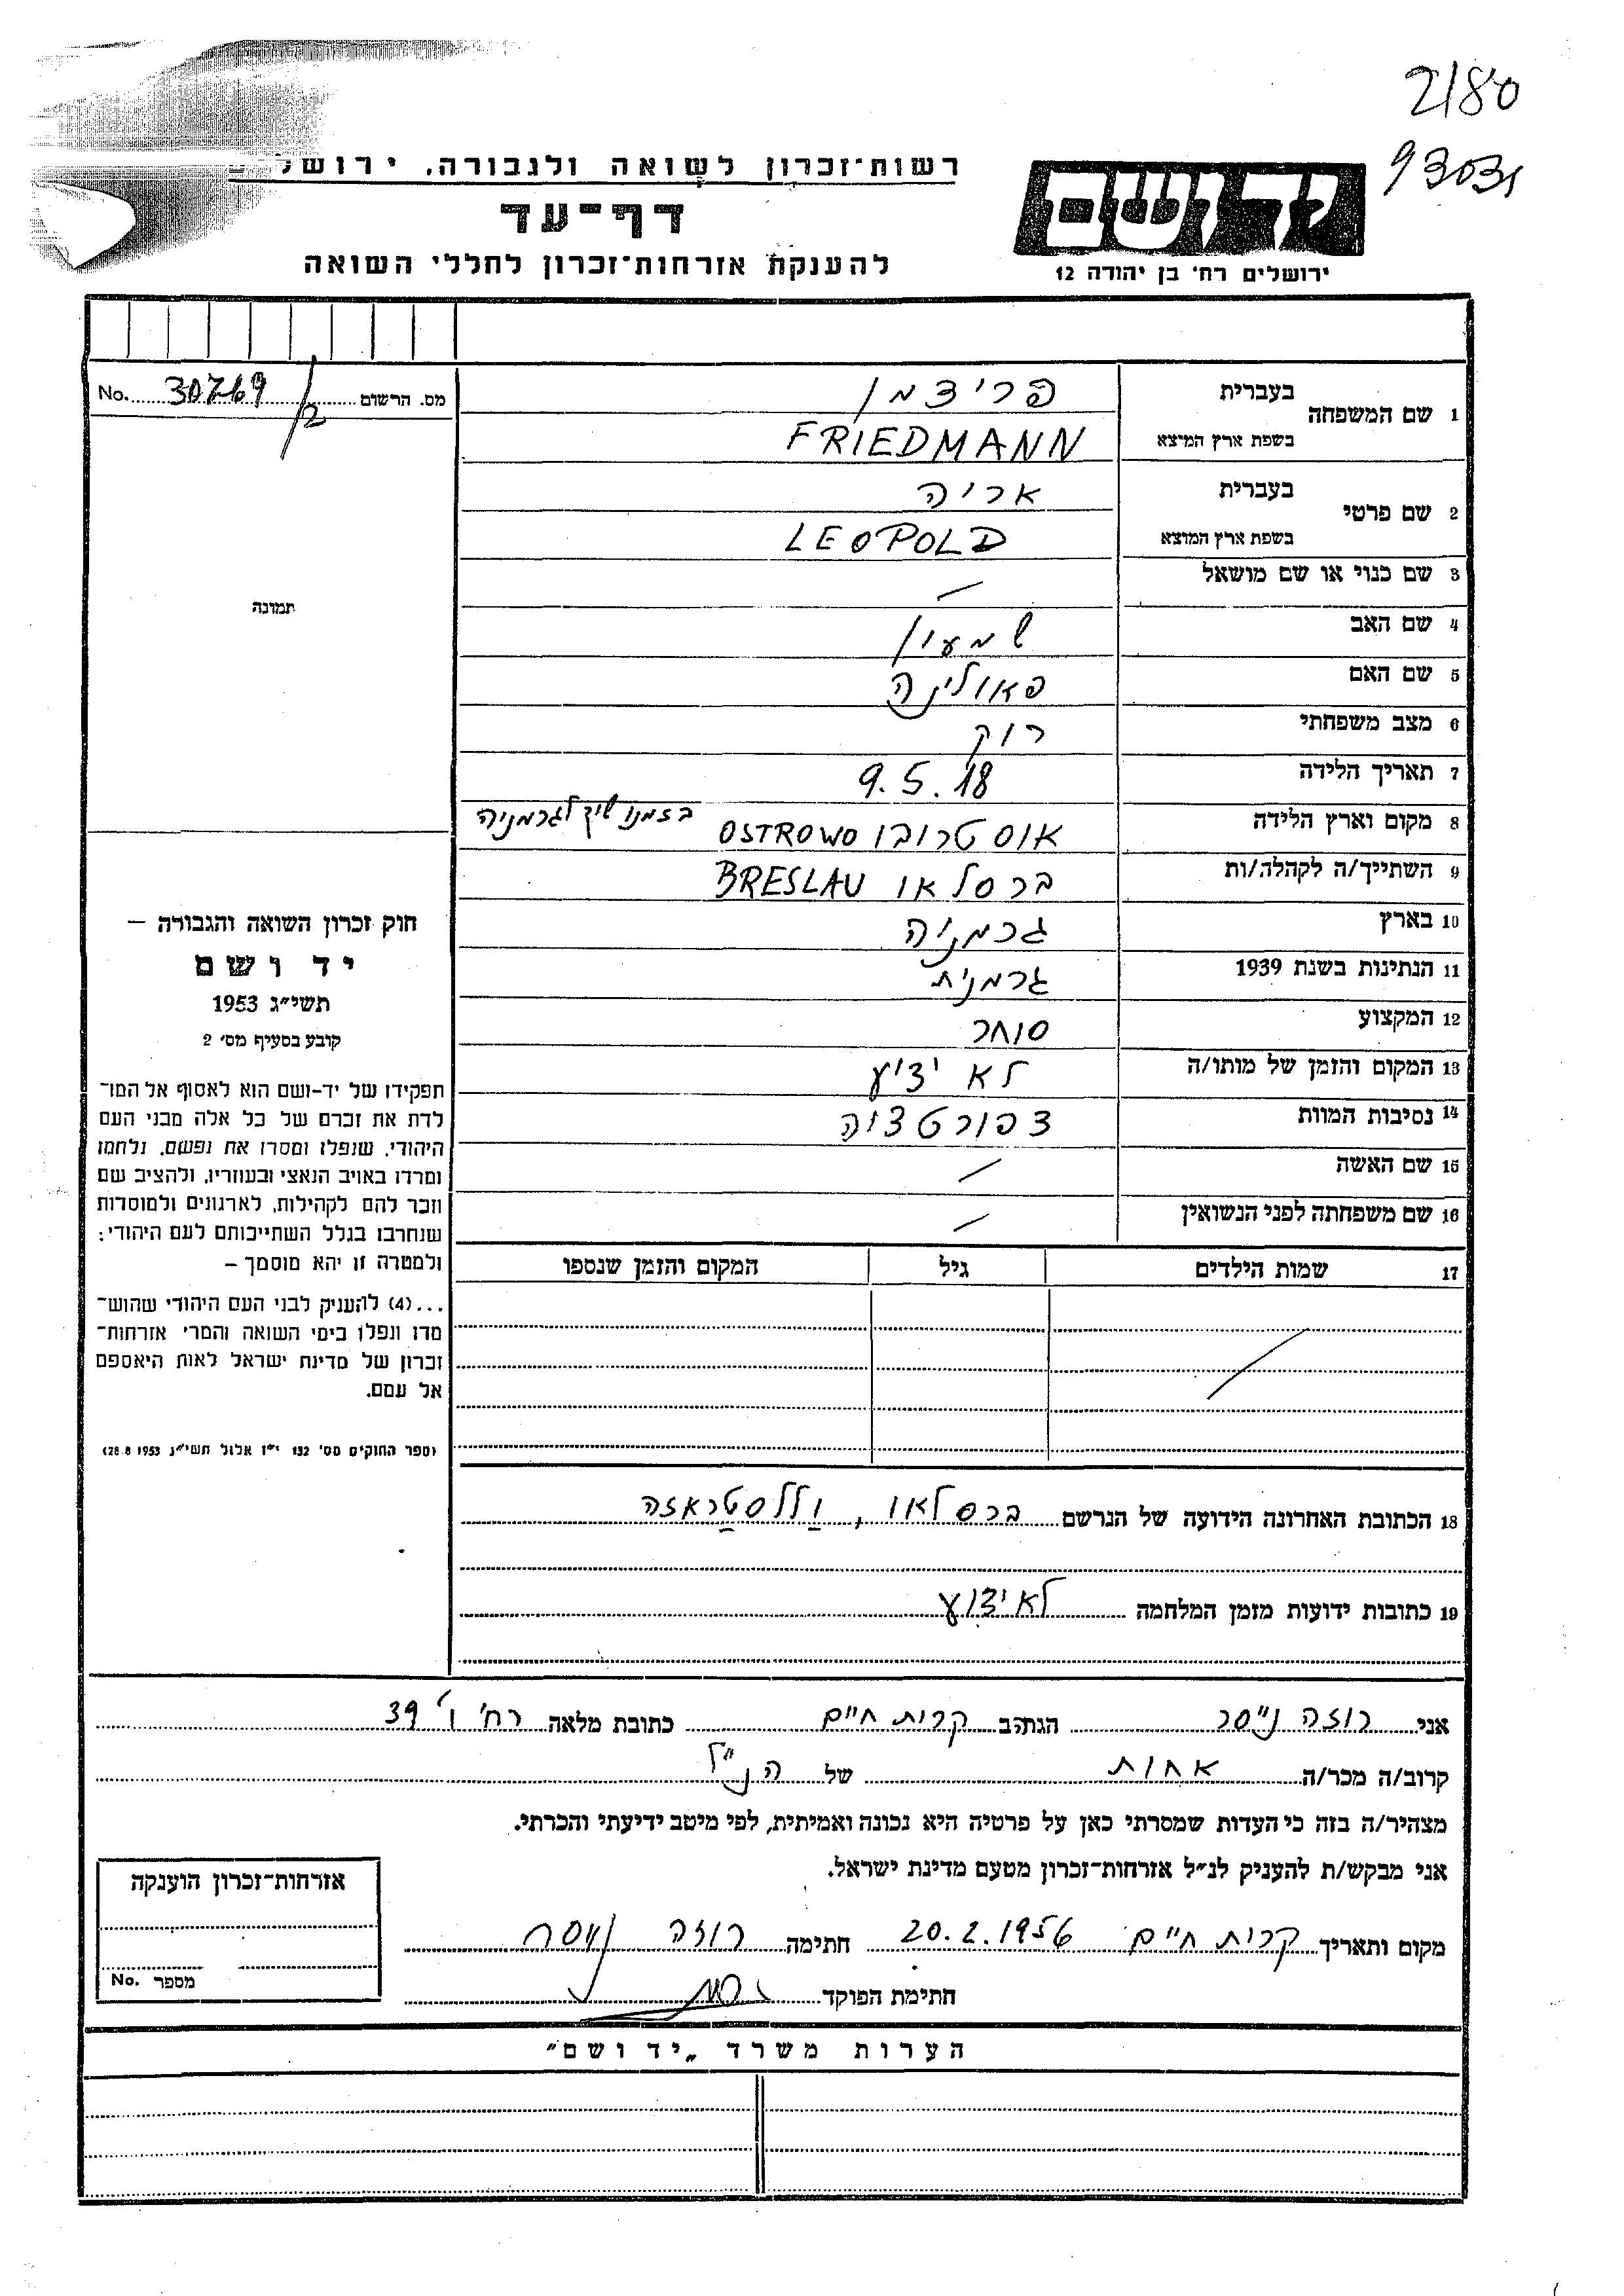 2180
93031
רשות־זכרון לשואה ולגבורה. ירושל
יד ושם
דף־עד
להענקת אזרחות־זכרון לחללי השואה
ירושלים רח' בן יהודה 12
מס. הרשום 30769/2 No.
1 שם המשפחה בעברית פרידמן
בשפת ארץ המוצא FRIEDMANN
2 שם פרטי בעברית אריה
בשפת ארץ המוצא LEOPOLD
תמונה
3 שם כנוי או שם מושאל —
4 שם האב שמעון
5 שם האם פאולינה
6 מצב משפחתי רוק
7 תאריך הלידה 9.5.18
8 מקום וארץ הלידה אוסטרובו OSTROWO בזמנו שיך לגרמניה
9 השתייך/ה לקהלה/ות ברסלאו BRESLAU
10 בארץ גרמניה
11 הנתינות בשנת 1939 גרמנית
12 המקצוע סוחר
13 המקום והזמן של מותו/ה לא ידוע
14 נסיבות המוות דפורטציה
15 שם האשה —
16 שם משפחתה לפני הנשואין —
17 שמות הילדים גיל המקום והזמן שנספו
חוק זכרון השואה והגבורה —
יד ושם
תשי״ג 1953
קובע בסעיף מס' 2
תפקידו של יד-ושם הוא לאסוף אל המו־
לדת את זכרם של כל אלה מבני העם
היהודי, שנפלו ומסרו את נפשם, נלחמו
ומרדו באויב הנאצי ובעוזריו, ולהציב שם
וזכר להם לקהילות, לארגונים ולמוסדות
שנחרבו בגלל השתייכותם לעם היהודי;
ולמטרה זו יהא מוסמך —
...(4) להעניק לבני העם היהודי שהוש־
מדו ונפלו בימי השואה והמרי אזרחות־
זכרון של מדינת ישראל לאות היאספם
אל עמם.
(ספר החוקים מס' 132 י״ז אלול תשי״ג 28.8.1953)
18 הכתובת האחרונה הידועה של הנרשם ברסלאו, וללסטראזה
19 כתובות ידועות מזמן המלחמה לא ידוע
אני רוזה נייסר הגר/ב קרית חיים כתובת מלאה רח' ו' 39
קרוב/ה מכר/ה אחות של הנ״ל
מצהיר/ה בזה כי העדות שמסרתי כאן על פרטיה היא נכונה ואמיתית, לפי מיטב ידיעתי והכרתי.
אני מבקש/ת להעניק לנ״ל אזרחות־זכרון מטעם מדינת ישראל.
מקום ותאריך קרית חיים 20.2.1956 חתימה רוזה נייסר
חתימת הפוקד
אזרחות־זכרון הוענקה
מספר No.
הערות משרד „יד ושם״